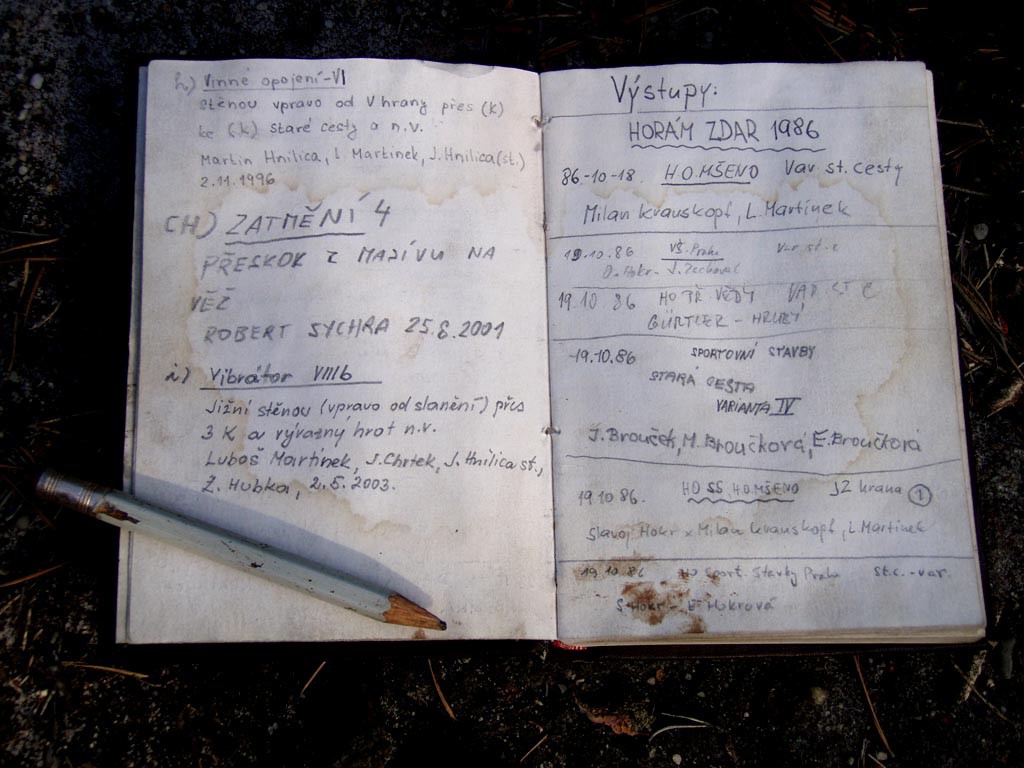 h) Vinné opojení-VI
stěnou vpravo od V hrany přes (k)
ke (k) staré cesty a n.v.
Martin Hnilica, L Martinek, J. Hnilica (st.)
2.11.1996
CH) ZATMĚNÍ 4
PŘESKOK Z MASÍVU NA
VĚŽ
ROBERT SYCHRA 25.8.2001
i) Vibrátor VIIIb
Jižní stěnou (vpravo od slanění) přes
3 K a výrazný hrot n.v.
Luboš Martínek, J. Chrtek, J. Hnilica st.,
Z. Hubka, 2.5.2003.
Výstupy:
HORÁM ZDAR 1986
86-10-18 H.O.MŠENO Var st. cesty
Milan Krauskopf, L. Martínek
19.10.86 VŠ. Praha Var st. c
D. Hokr - J.
19.10 86 HO VĚDY VAR ST C
GÜRTLER - HRUBÝ
19.10.86 SPORTOVNÍ STAVBY
STARÁ CESTA
VARIANTA IV
J. Brouček, M. Broučková, E. Broučková
19 10 86. HO SS, H.O.MŠENO JZ hrana 1
Slavoj Hokr x Milan Krauskopf, L. Martínek
19 10 86 HO Sport. Stavby Praha st.c. - var.
S. Hokr - E Hokrová